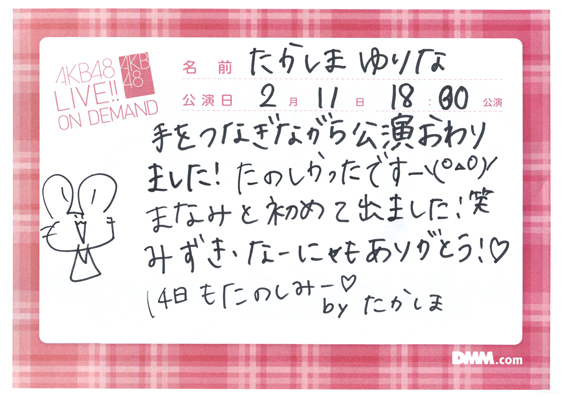 AKB48
LIVE!!
ON DEMAND
AKB
48
名前 たかしま ゆりな
公演日 2月 11日 18:00 公演
手をつなぎながら公演おわり
ました! たのしかったですーヽ(°△°)/
まなみと初めて出ました!笑
みずき、なーにゃもありがとう!♡
14日もたのしみー♡
by たかしま
DMM.com